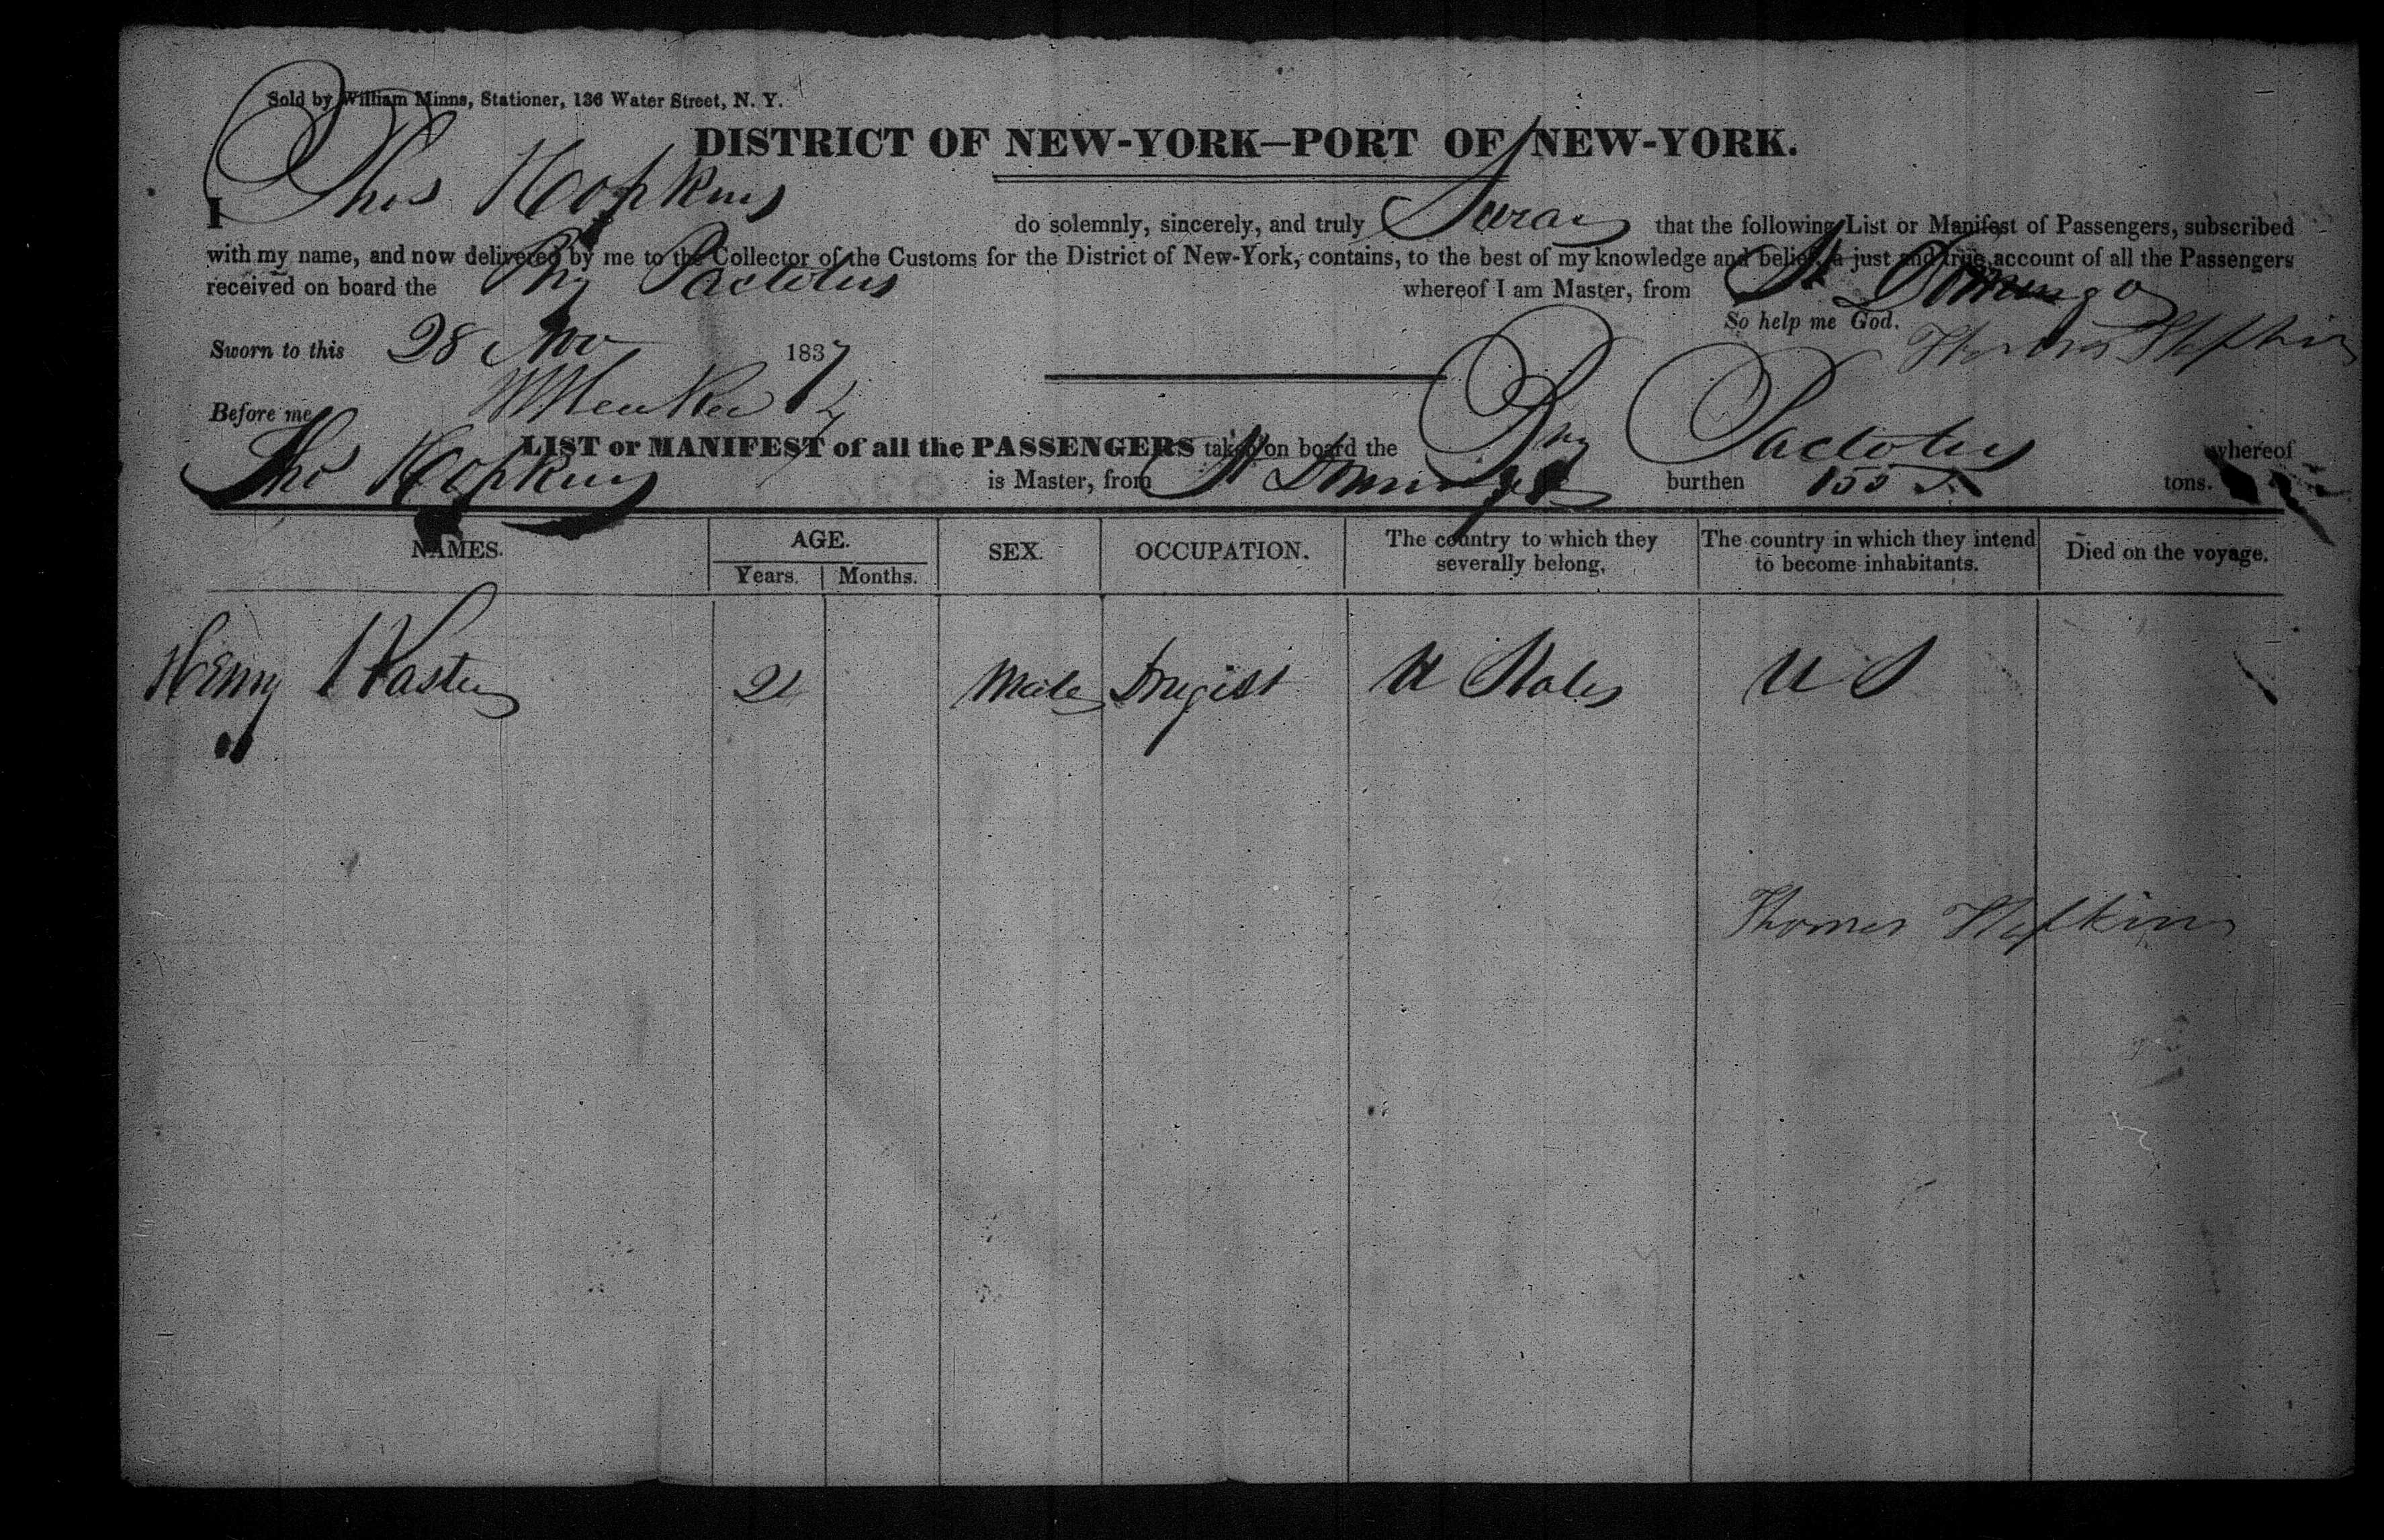 Sold by William Minns, Stationer, 136 Water Street, N. Y.
DISTRICT OF NEW-YORK—PORT OF NEW-YORK.
I Thos Hopkins do solemnly, sincerely, and truly Swear that the following List or Manifest of Passengers, subscribed
with my name, and now delivered by me to the Collector of the Customs for the District of New-York, contains, to the best of my knowledge and belief, a just and true account of all the Passengers
received on board the Brig Pactolus whereof I am Master, from St Domingo
So help me God.
Sworn to this 28 Nov 1837 Thomas Hopkins
Before me
LIST or MANIFEST of all the PASSENGERS taken on board the Brig Pactolus whereof
Thos Hopkins is Master, from St Domingo burthen 155 tons.
NAMES. AGE. SEX. OCCUPATION. The country to which they severally belong, The country in which they intend to become inhabitants. Died on the voyage.
Years. Months.
Henry 21 Male Drugist U States U S
Thomas Hopkins